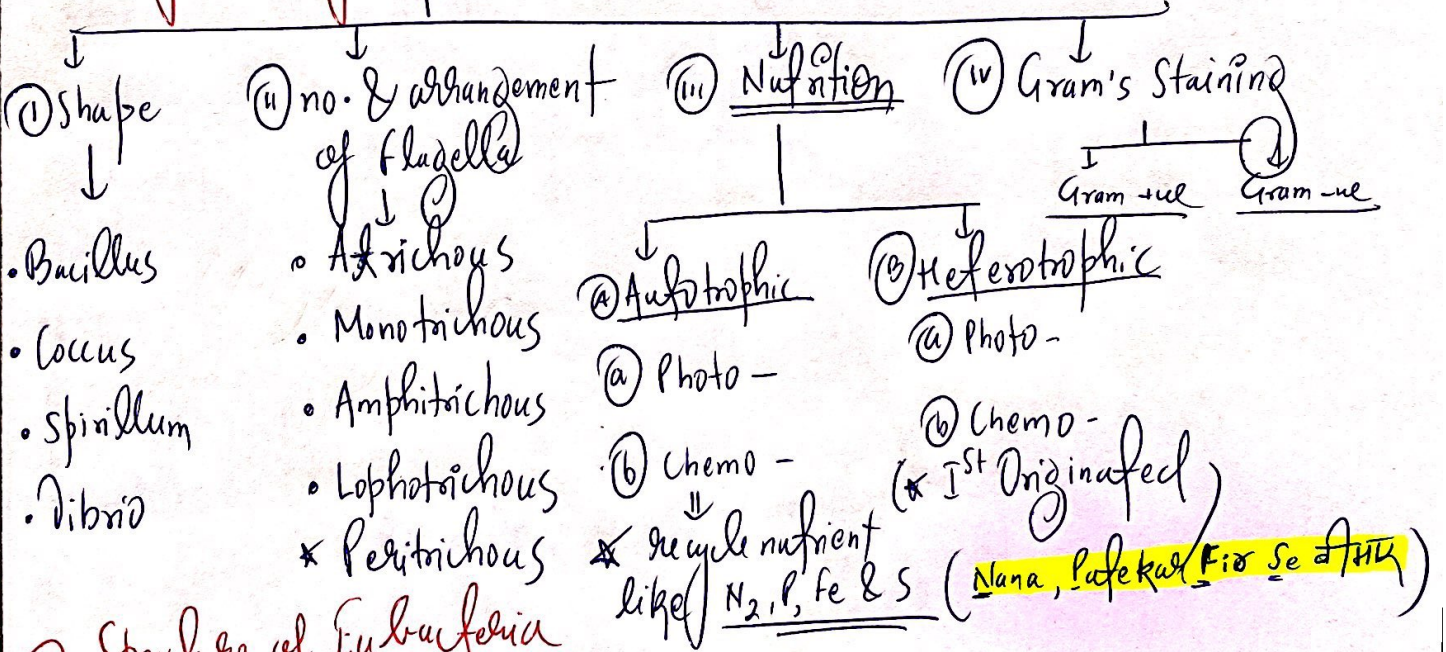 (i) Shape
↓
• Bacillus
• Coccus
• Spirillum
• Vibrio
(ii) no. & arrangement
of flagella
↓
• Atrichous
• Monotrichous
• Amphitrichous
• Lophotrichous
* Peritrichous
(iii) Nutrition
(A) Autotrophic
(a) Photo -
(b) Chemo -
⇓
* recycle nutrient
like N2, P, Fe & S (Nana, Patekar Fir Se
(B) Heterotrophic
(a) Photo -
(b) Chemo -
(* Ist Originated)
(iv) Gram's Staining
Gram +ve Gram -ve
Structure of Eubacteria